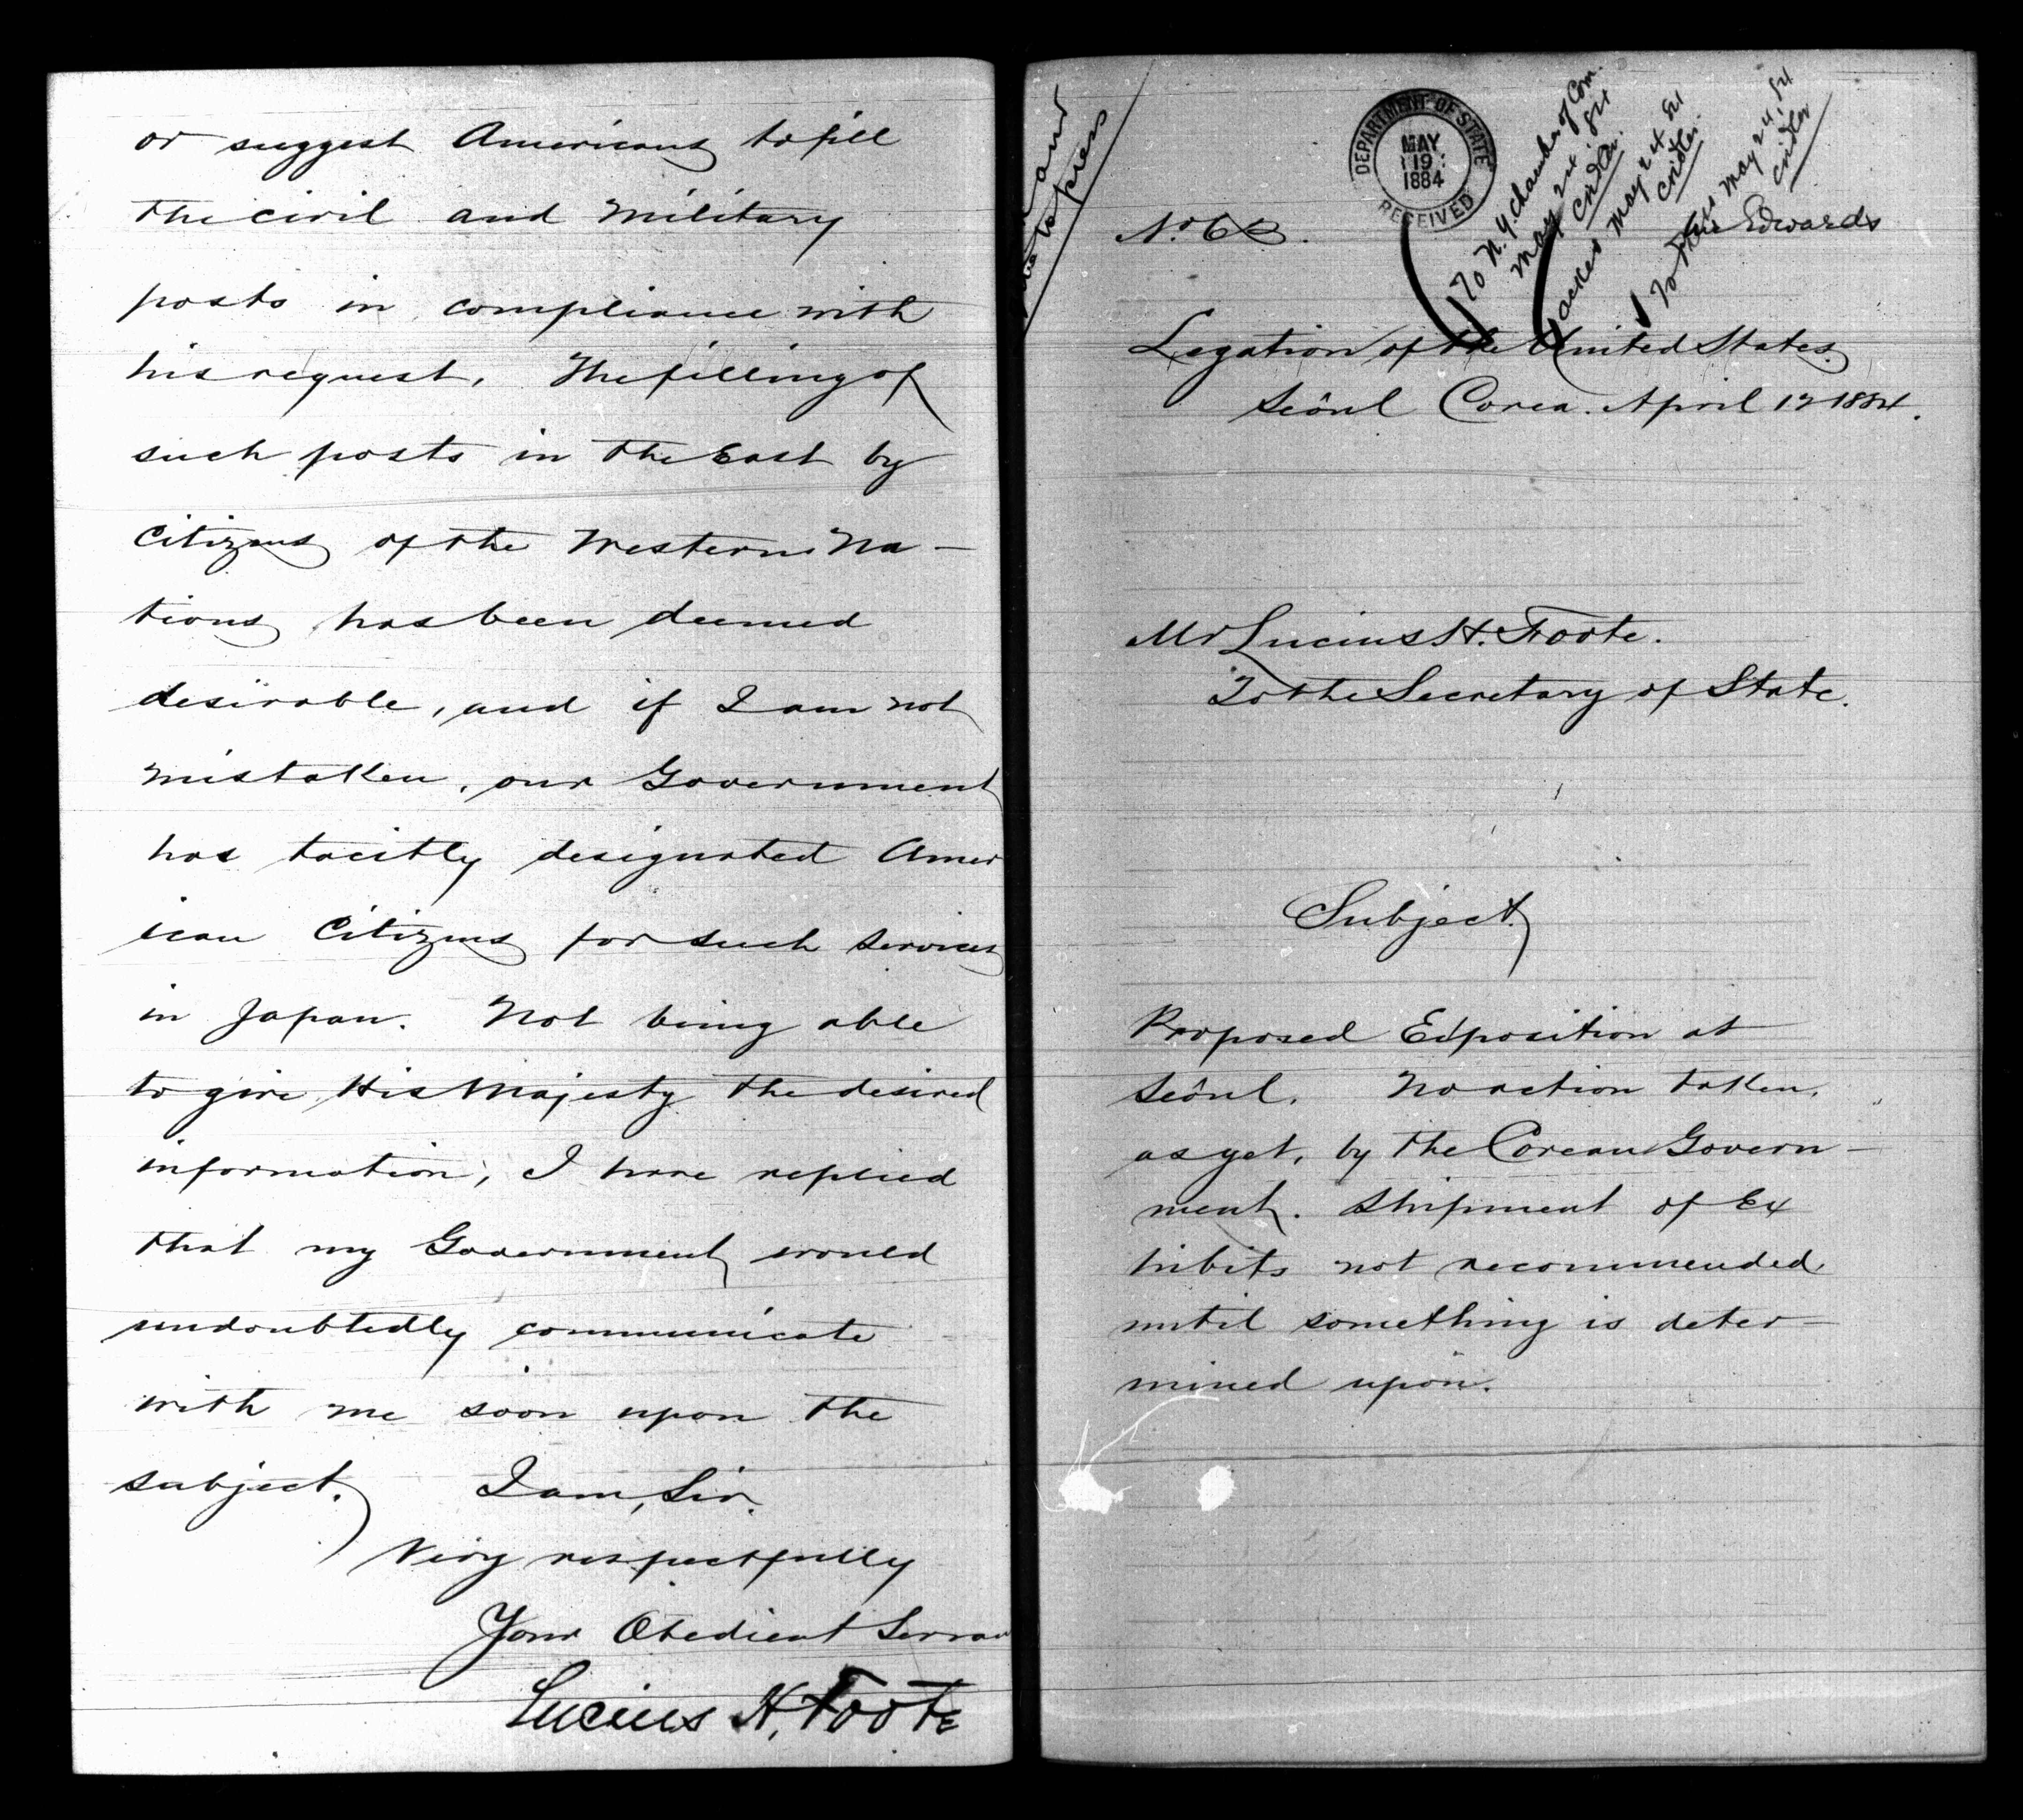 or suggest Americans to fill
the civil and Military
posts in compliance with
his request. The filling of
such posts in the East by
Citizens of the Western Na-
tions has been deemed
desirable, and if I am not
mistaken, our Government
has tacitly designated Amer
ican Citizens for such services
in Japan. Not being able
to give His Majesty the desired
information, I have replied
that my Government would
undoubtedly communicate
with me soon upon the
subject. I am, Sir.
Very respectfully
Your Obedient Servan
Lucius H. Foote
to press
DEPARTMENT OF STATE
MAY
19
1884
RECEIVED
To N.Y. Chamber of Com.
May 24 '84
Cridler.
May 24 84
Cridler.
May 24, 84
Cridler
Edwards
No. 63.
Legation of the United States.
Seôul Corea. April 17 1884.
Mr Lucius H. Foote.
To the Secretary of State.
Subject.
Proposed Exposition at
Seôul. No action taken,
as yet, by the Corean Govern-
ment. Shipment of Ex
hibits not recommended
until something is deter-
mined upon.